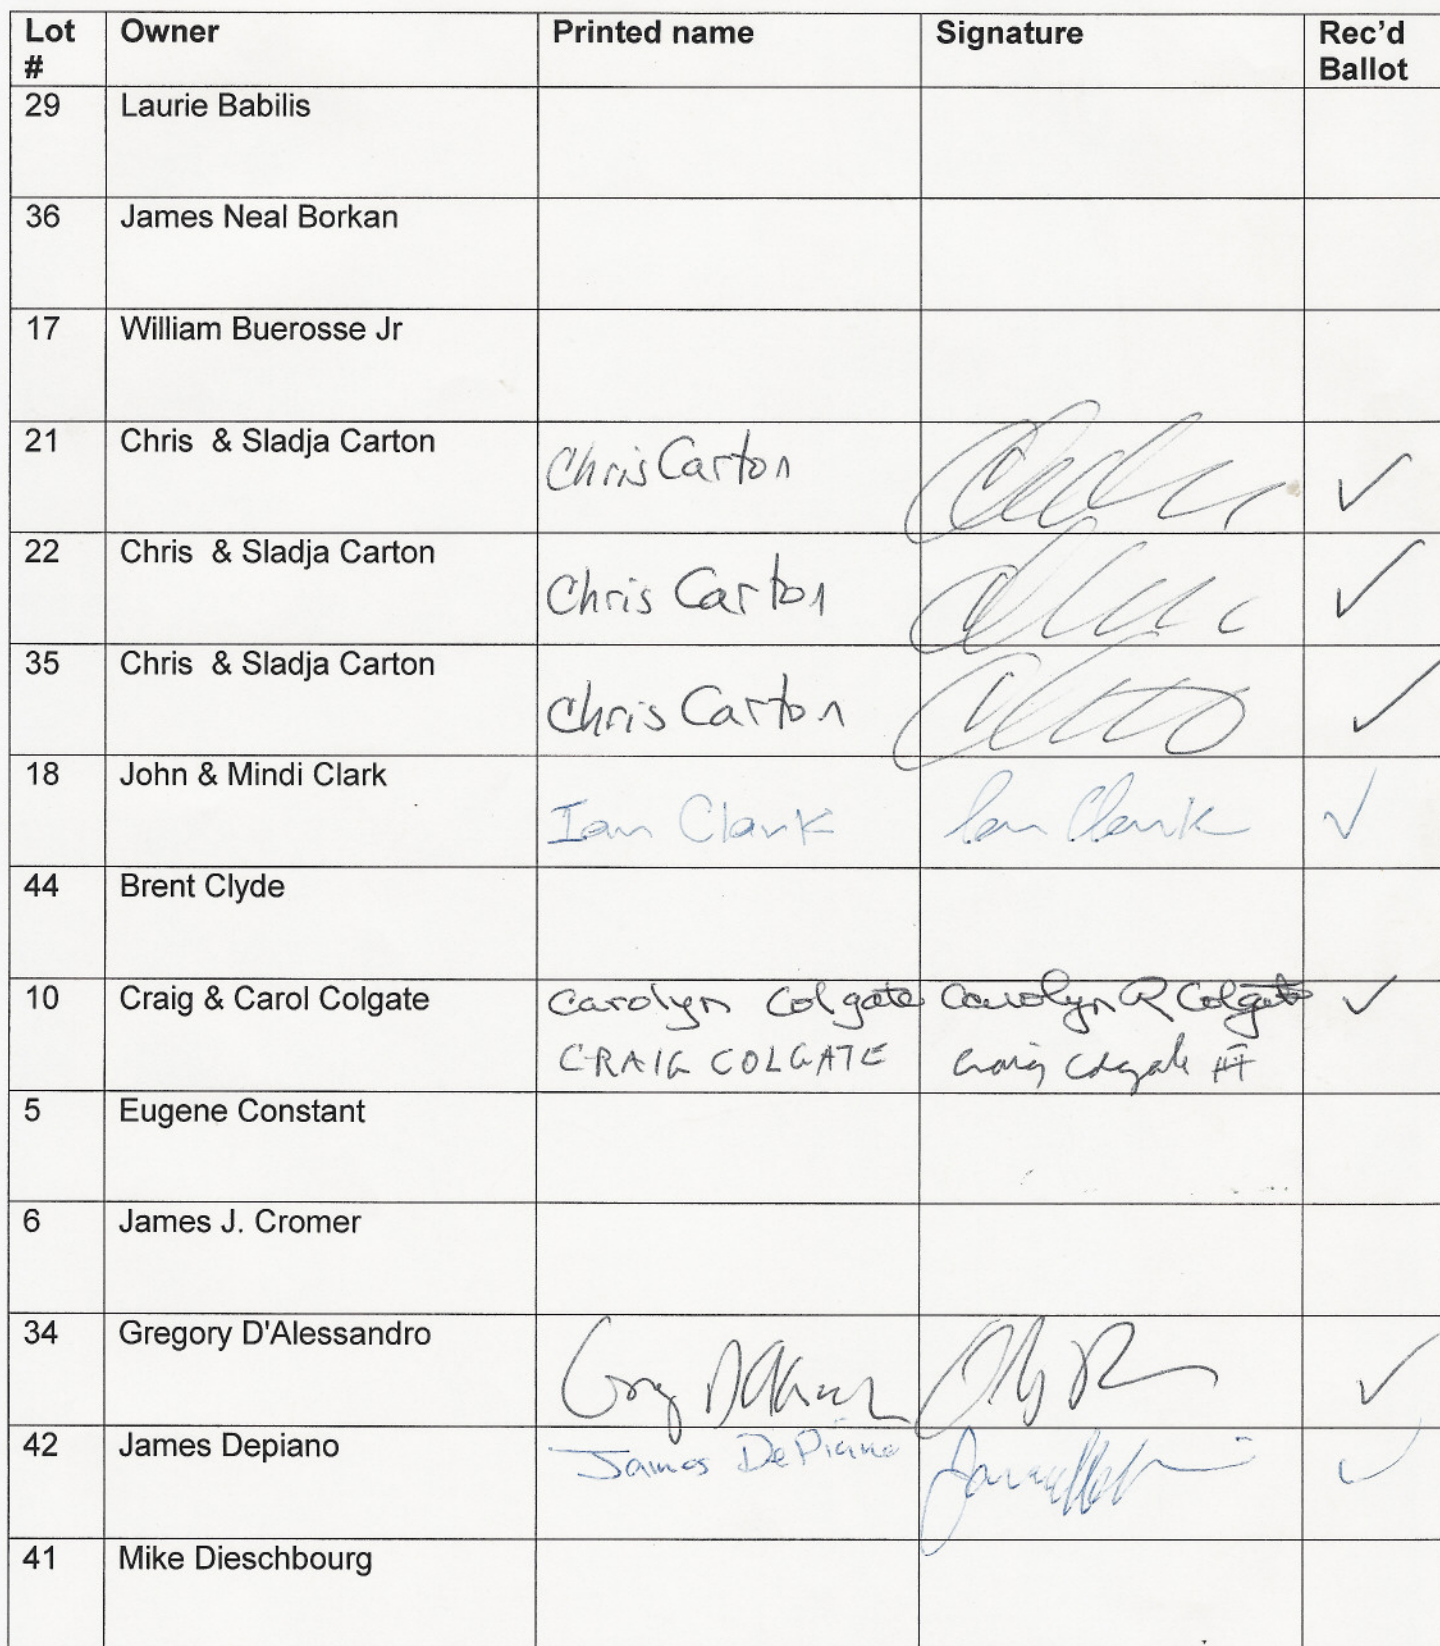 Lot # Owner Printed name Signature Rec'd Ballot
29 Laurie Babilis
36 James Neal Borkan
17 William Buerosse Jr
21 Chris & Sladja Carton Chris Carton ✓
22 Chris & Sladja Carton Chris Carton ✓
35 Chris & Sladja Carton Chris Carton ✓
18 John & Mindi Clark Ian Clark Ian Clark ✓
44 Brent Clyde
10 Craig & Carol Colgate Carolyn Colgate Carolyn R Colgate ✓
CRAIG COLGATE Craig Colgate III
5 Eugene Constant
6 James J. Cromer
34 Gregory D'Alessandro Greg ✓
42 James Depiano James DePiano ✓
41 Mike Dieschbourg